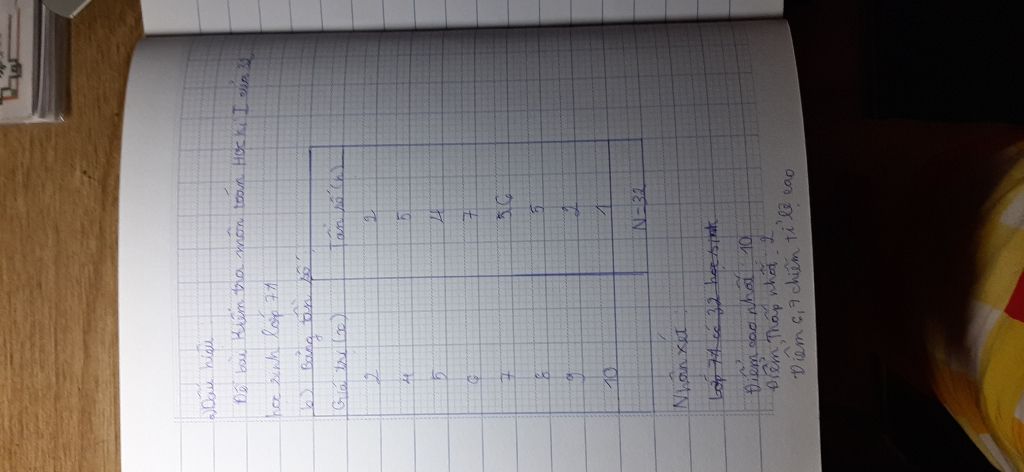 a) Dấu hiệu:
Đề bài kiểm tra môn toán Học kì I của 32
học sinh lớp 7A
b) Bảng tần số
Giá trị (x) Tần số (n)
2 2
4 5
5 4
6 7
7 6
8 5
9 2
10 1
N=32
Nhận xét:
Lớp 7A có 32 học sinh
Điểm cao nhất 10
Điểm thấp nhất 2
Điểm 6, 7 chiếm tỉ lệ cao